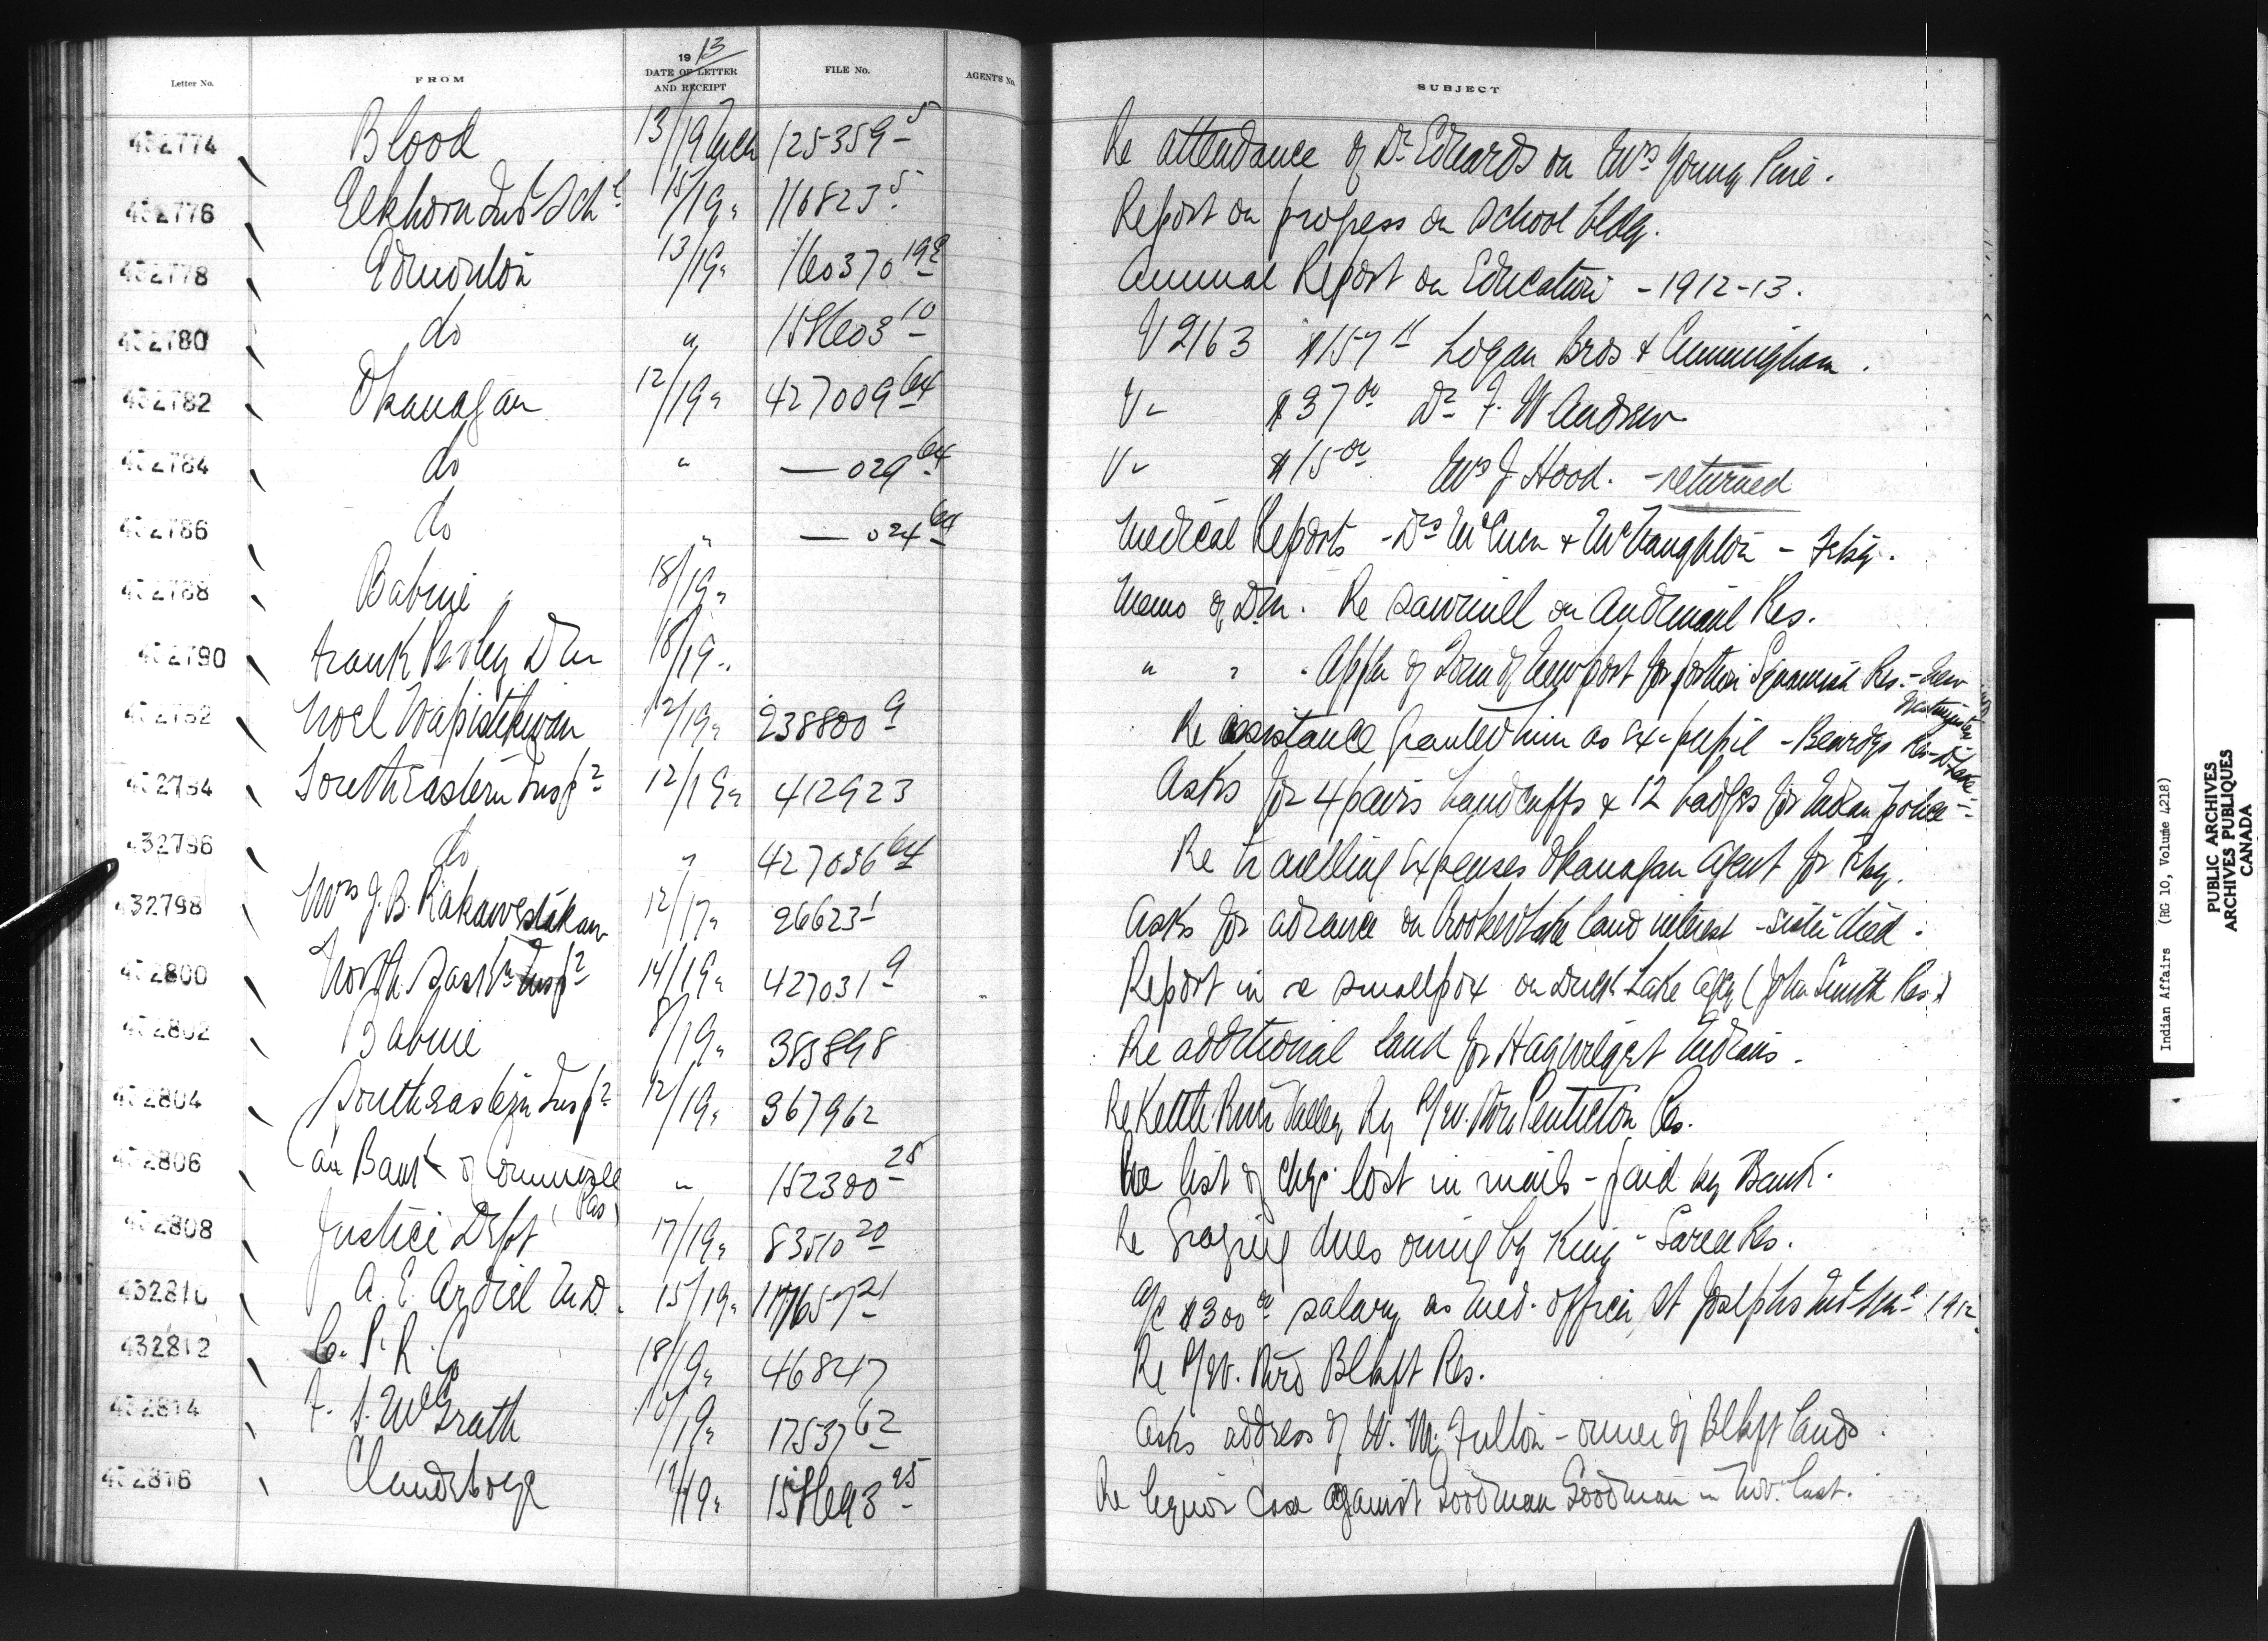 Letter No. FROM 19 13 DATE OF LETTER AND RECEIPT FILE No. AGENT'S No. SUBJECT
432774 Blood 13/19 Mch 125359 5 Re attendance of Dr Edwards on Mrs Young Pine.
432776 Elkhorn Ind Schl 15/19 " 116823 5 Report on progress on school bldg.
432778 Edmonton 13/19 " 160370 Annual Report on Education - 1912-13.
432780 do " 10 V 2163 Logan Bros & Cunningham.
432782 Okanagan 12/19 " 427009 64 V " $37 00 Dr F. W Andrew
432784 do " — 029 64 V " $15 00 Mrs J Hood. - returned
432786 do " — 024 64 Medical Reports - Drs & McNaughton - Feby.
432788 Babine 18/19 " Memo of D.M. Re sawmill on Res.
432790 Frank Pedley D M 18/19 " " " . Appln of Town of Newport for portion Squamish Res. - New Westminster
432792 Noel 12/19 " 238800 9 Re assistance granted him as ex-pupil - Beardys Res - D. Lake
432794 South Eastern Insp 12/19 " 412923 Asks for 4 pairs handcuffs & 12 badges for Indian police -
432796 do " 427036 64 Re travelling expenses Okanagan Agent for Feby.
432798 Mrs J. B. 12/17 " 26623 1 Asks for advance on Crooked Lake land interest - sister died.
432800 North Sask'n Insp 14/19 " 427031 9 Report in re smallpox on Duck Lake Agcy (John Smith Res.)
432802 Babine 8/19 " 383898 Re additional land for Hagwilget Indians.
432804 South Eastern Insp 12/19 " 367962 Re Kettle River Valley Ry R/W. thro Penticton Res.
432806 Can Bank of Commerce (Pas) " 152300 25 Re list of chqs. lost in mails - paid by Bank.
432808 Justice Dept 17/19 " 83510 20 Re Grazing dues owing by King - Sarcee Res.
432810 A. E. Ardiel M.D. 15/19 " 21 a/c $300 00 salary as Med. officer, St Josephs Ind Schl 1912.
432812 C. P. R. Co 18/19 " 46847 Re R/W. thro Blkft Res.
432814 F. S. McGrath /19 " 17537 62 Asks address of W. M. Fulton - owner of Blkft lands.
432816 Clandeboye /19 " 25 Re liquor case against Goodman Goodman in Nov. last.
Indian Affairs (RG 10, Volume 4218)
PUBLIC ARCHIVES
ARCHIVES PUBLIQUES
CANADA